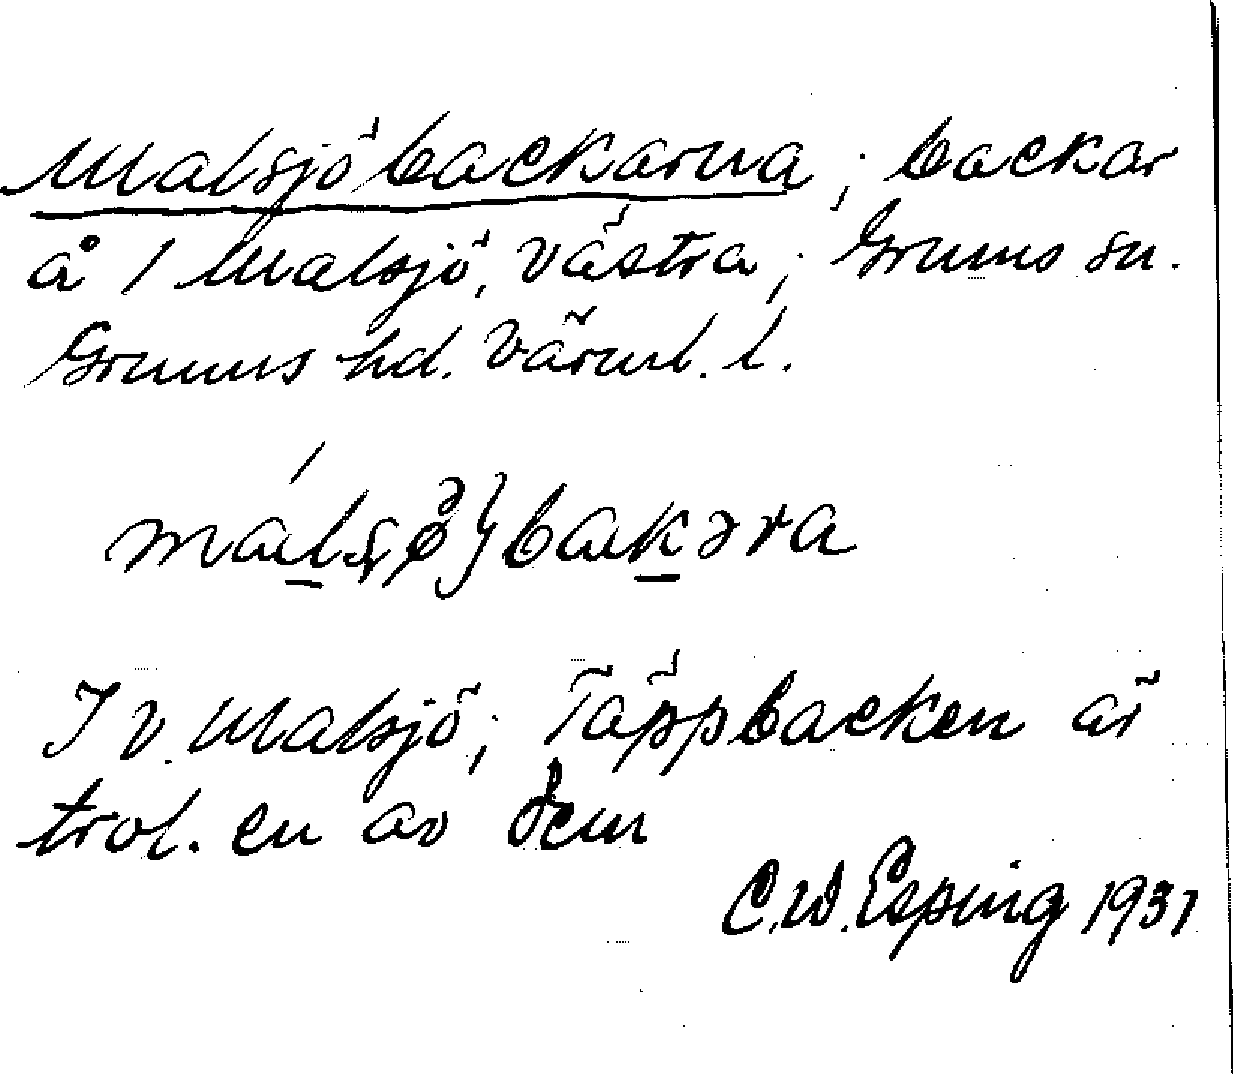 Malsjöbackarna; backar
å 1 Malsjö, Västra; Grums sn.
Grums hd. Värml. l.
I v. Malsjö; Täppbacken är
trol. en av dem
C.W. Esping 1931